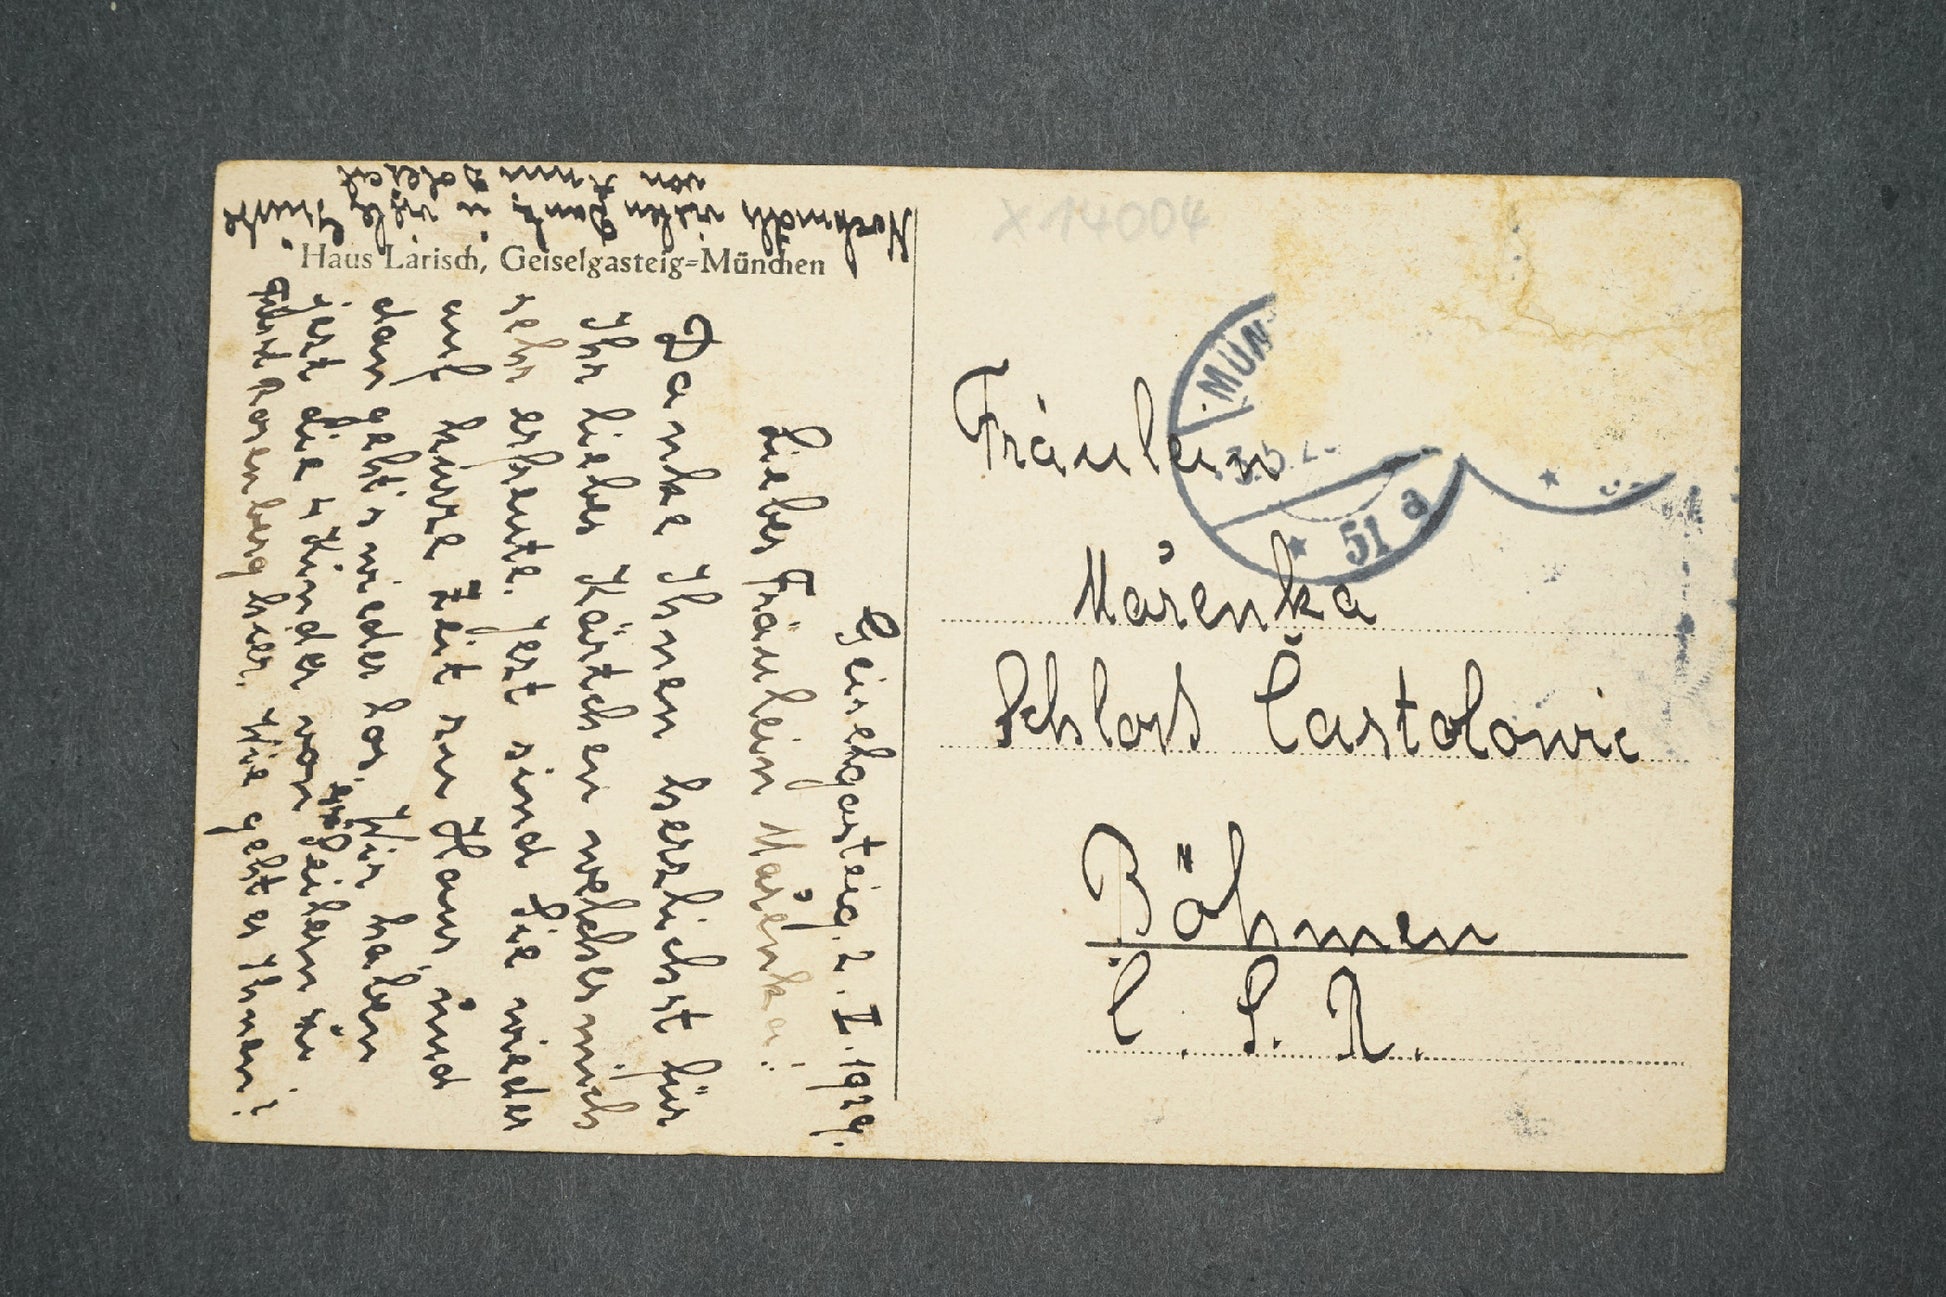 Haus Larisch, Geiselgasteig=München
Geiselgasteig, 2. I. 1929.
Liebes Fräulein Mařenka!
Danke Ihnen herzlichst für
Ihr liebes Kärtchen welches mich
sehr erfreute. Jezt sind Sie wieder
auf kurze Zeit zu Haus, und
dan geht's wieder los, Wir haben
jezt die 4 Kinder von
hier. Wie geht es Ihnen?
Nochmals vielen Dank u viele Grüsse
von
X 14004
Fräulein
Mařenka
Schloss Častolowic
Böhmen
Č. S. R.
MÜN
51 a